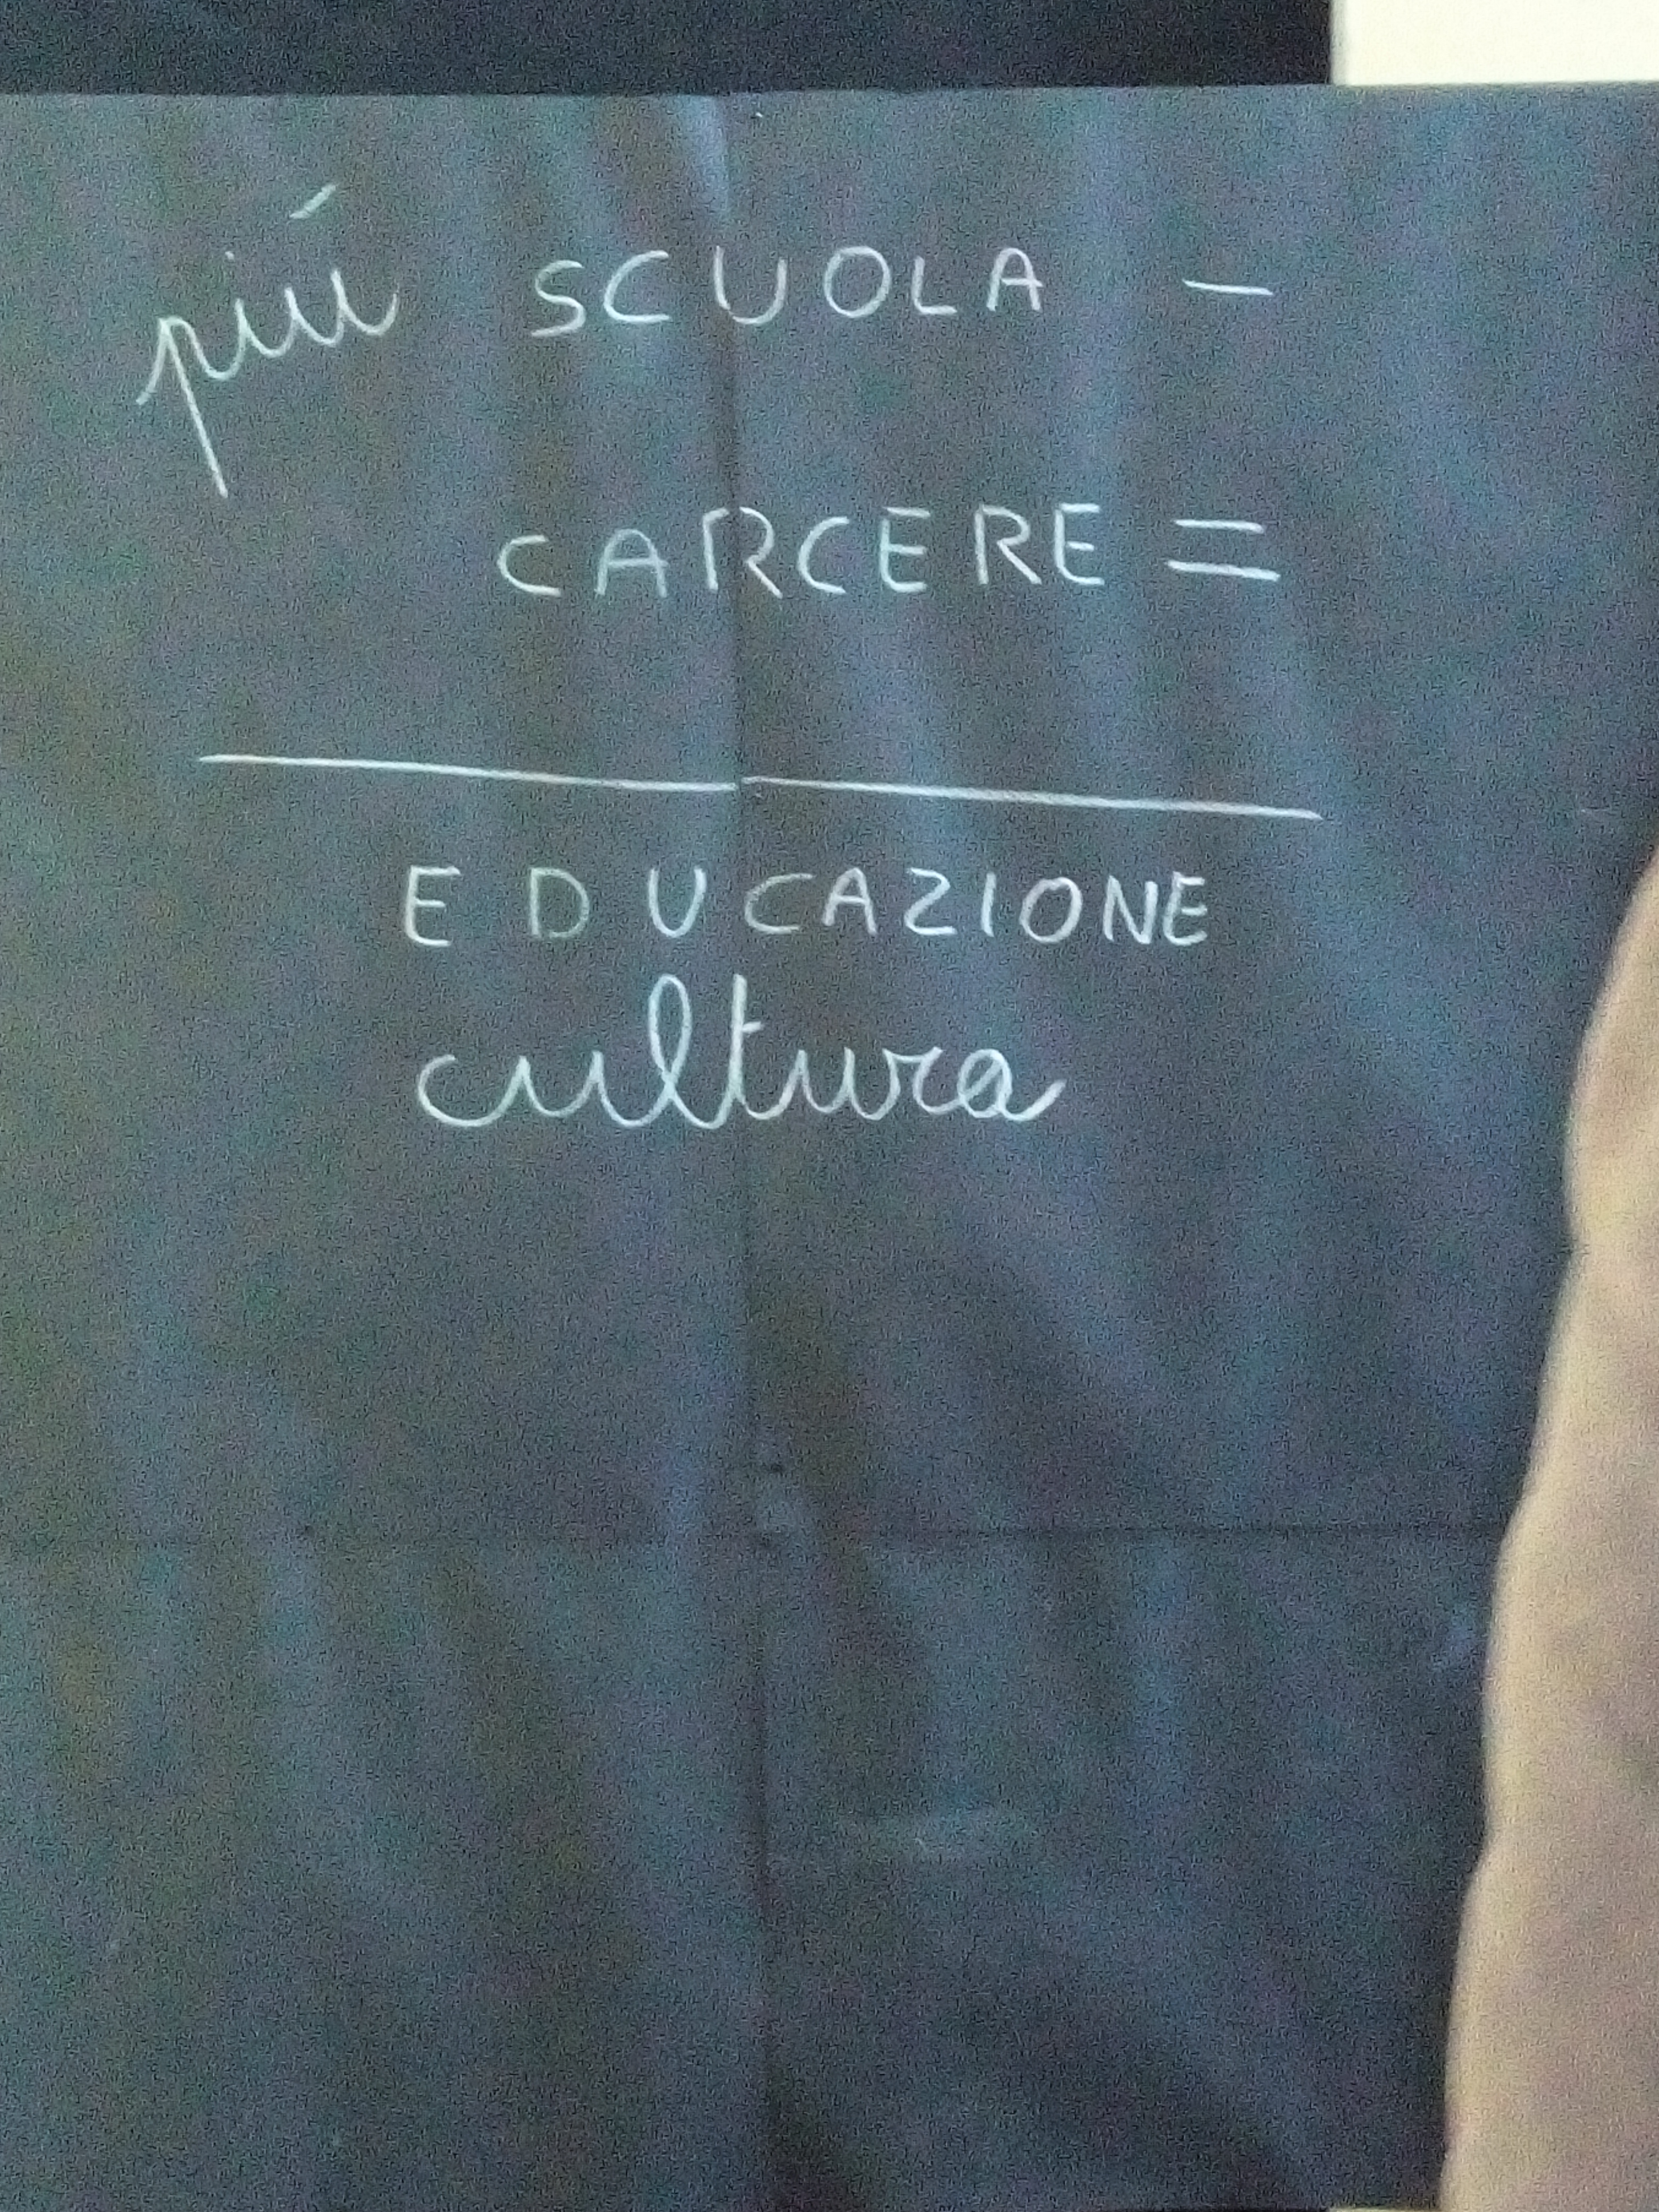 più SCUOLA -
CARCERE =
EDUCAZIONE
cultura